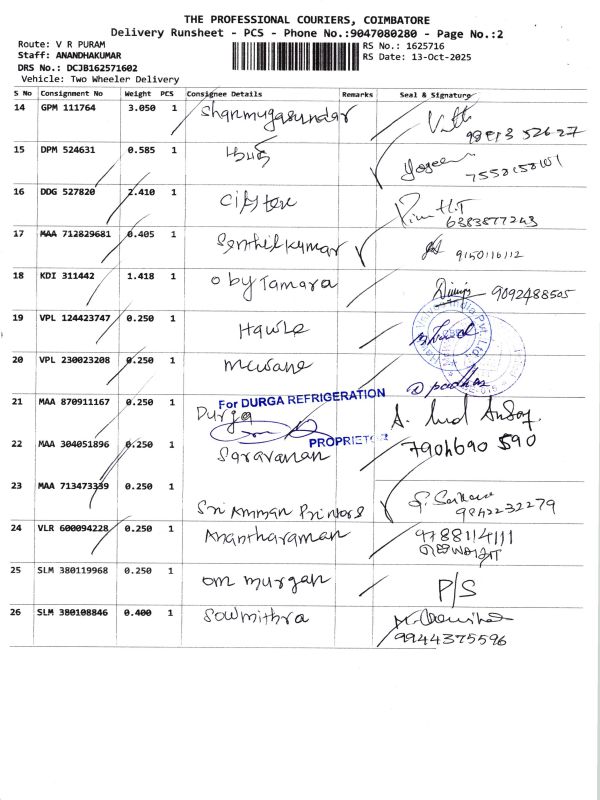 THE PROFESSIONAL COURIERS, COIMBATORE
Delivery Runsheet - PCS - Phone No.:9047080280 - Page No.:2
Route: V R PURAM
RS No.: 1625716
Staff: ANANDHAKUMAR
RS Date: 13-Oct-2025
DRS No.: DCJB162571602
Vehicle: Two Wheeler Delivery
S No Consignment No Weight PCS Consignee Details Remarks Seal & Signature
14 GPM 111764 3.050 1 Shanmugasundar
15 DPM 524631 0.585 1
16 DDG 527820 2.410 1
6383877243
17 MAA 712829681 0.405 1 Senthilkumar
9150116112
18 KDI 311442 1.418 1 O by Tamara
9092488505
19 VPL 124423747 0.250 1 Hawle
20 VPL 230023208 0.250 1 mcwane
21 MAA 870911167 0.250 1 Durga
For DURGA REFRIGERATION
PROPRIETOR
22 MAA 304051896 0.250 1 Saravanan
790 590
23 MAA 713473339 0.250 1 Sri Amman Printers
9842232279
24 VLR 600094228 0.250 1 Anantharaman
9788114111
25 SLM 380119968 0.250 1 om murgan
P/S
26 SLM 380108846 0.400 1 Sowmithra
9944375596